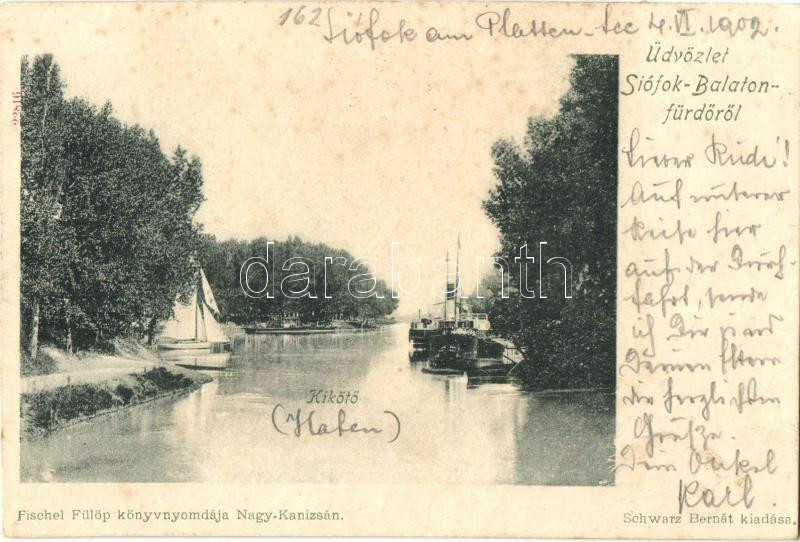 162 Siófok am Platten-See 4. VI. 1902
22816
Üdvözlet
Siófok-Balaton-
fürdőről
Lieber Rudi!
Auf unserer
Reise hier
auf der Durch-
fahrt, sende
ich Dir und
Deinen Eltern
die herzlichsten
Grüße.
Dein Onkel
Karl.
darabanth
Kikötő
(Hafen)
Fischel Fülöp könyvnyomdája Nagy-Kanizsán.
Schwarz Bernát kiadása.